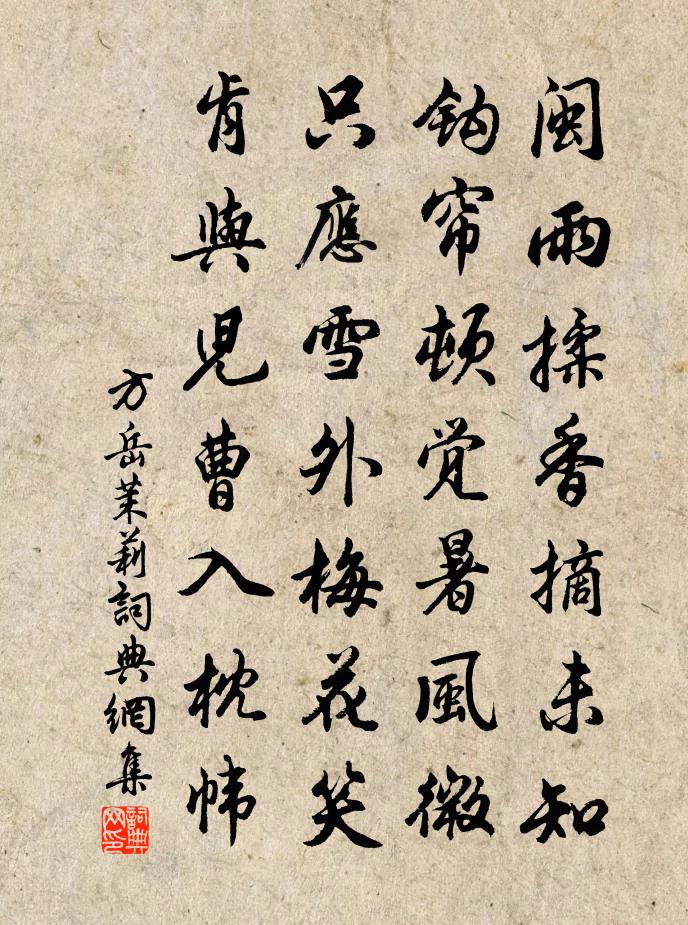 闽雨揉香摘未知
钩帘顿觉暑風微
只應雪外梅花笑
肯與児曹入枕帏
方岳茉莉詞典網集
詞典網印